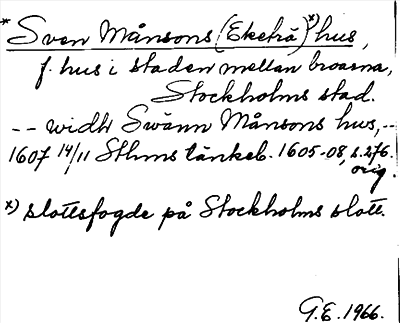 * Sven Månsons (Eketrä) x) hus,
f. hus i staden mellan broarna,
Stockholms stad.
-- widh Swänn Månsons hus, --
1607 14/11 Sthms tänkeb. 1605-08, s. 276.
orig.
x) slottsfogde på Stockholms slott.
G.E. 1966.